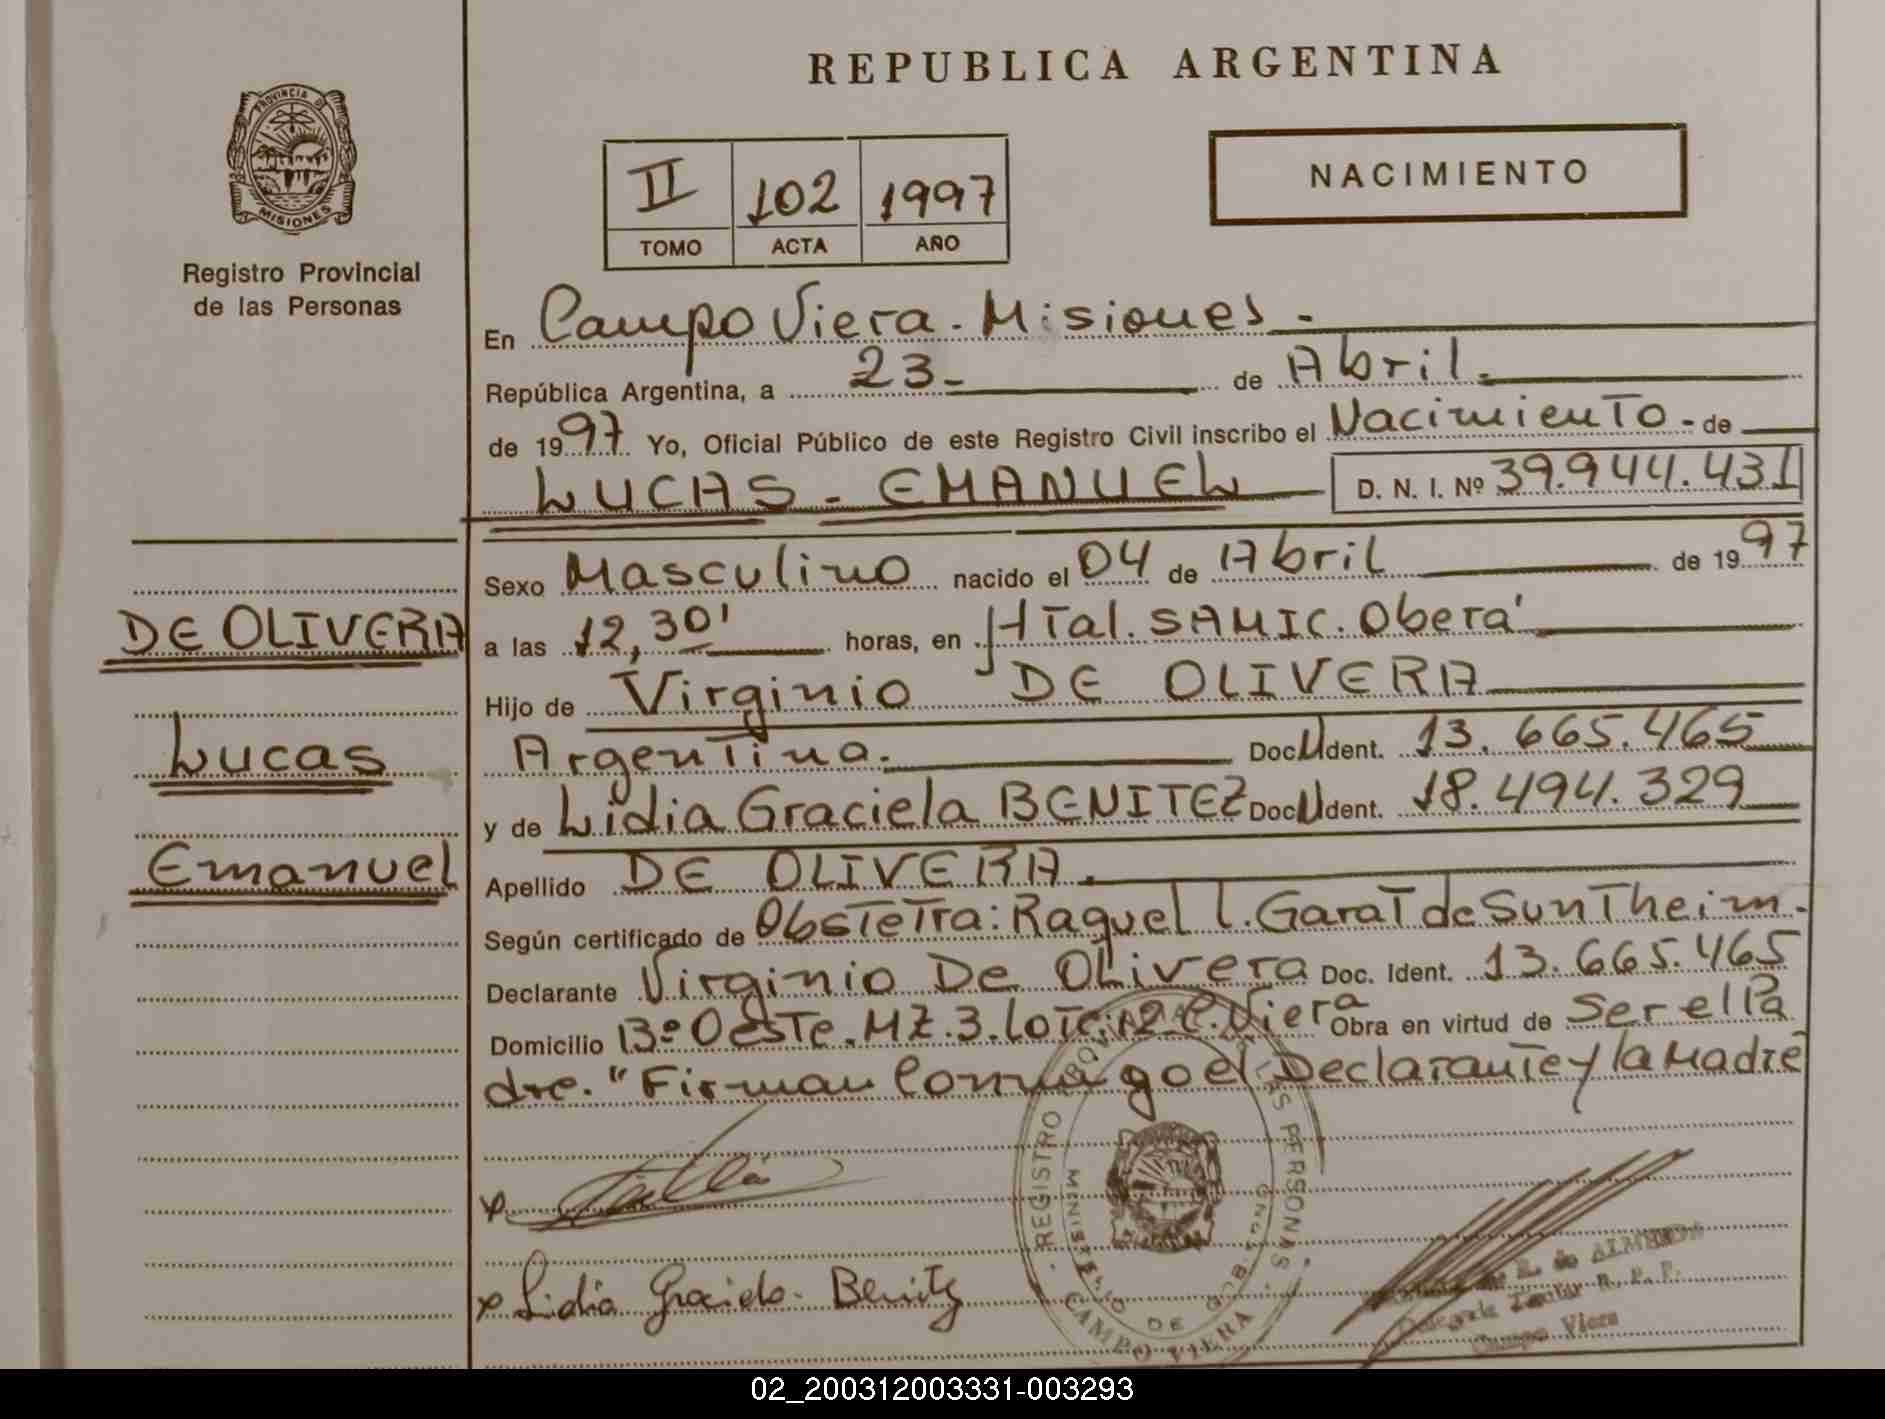 REPUBLICA ARGENTINA
PROVINCIA D
MISIONES
Registro Provincial
de las Personas
II 102 1997
TOMO ACTA AÑO
NACIMIENTO
En Campo Viera - Misiones -
República Argentina, a 23- de Abril -
de 1997 Yo, Oficial Público de este Registro Civil inscribo el Nacimiento - de
LUCAS - EMANUEL D. N. I. Nº 39.944.431
Sexo Masculino nacido el 04 de Abril de 1997
DE OLIVERA
a las 12,30' horas, en HTal. SAMIC. Oberá
Hijo de Virginio DE OLIVERA
Lucas
Argentina. Doc U Ident. 13.665.465
y de Lidia Graciela BENITEZ Doc U Ident. 18.494.329
Emanuel
Apellido DE OLIVERA.
Según certificado de ObsTeTra: Raquel L. GaraT de SunTheim.
Declarante Virginio De OLivera Doc. Ident. 13.665.465
Domicilio Bº OesTe. MZ. 3. LoTe: 12 C. Viera Obra en virtud de Ser el Pa
dre. "Firman Conmigo el DeclaranTe y la Madre
REGISTRO PERSONAS
MINISTERIO DE GOBIERNO
CAMPO VIERA
x Lidia Graciela. Benitez
de ALMEIDA
Delegada Titular R. P. P.
Campo Viera
02_200312003331-003293